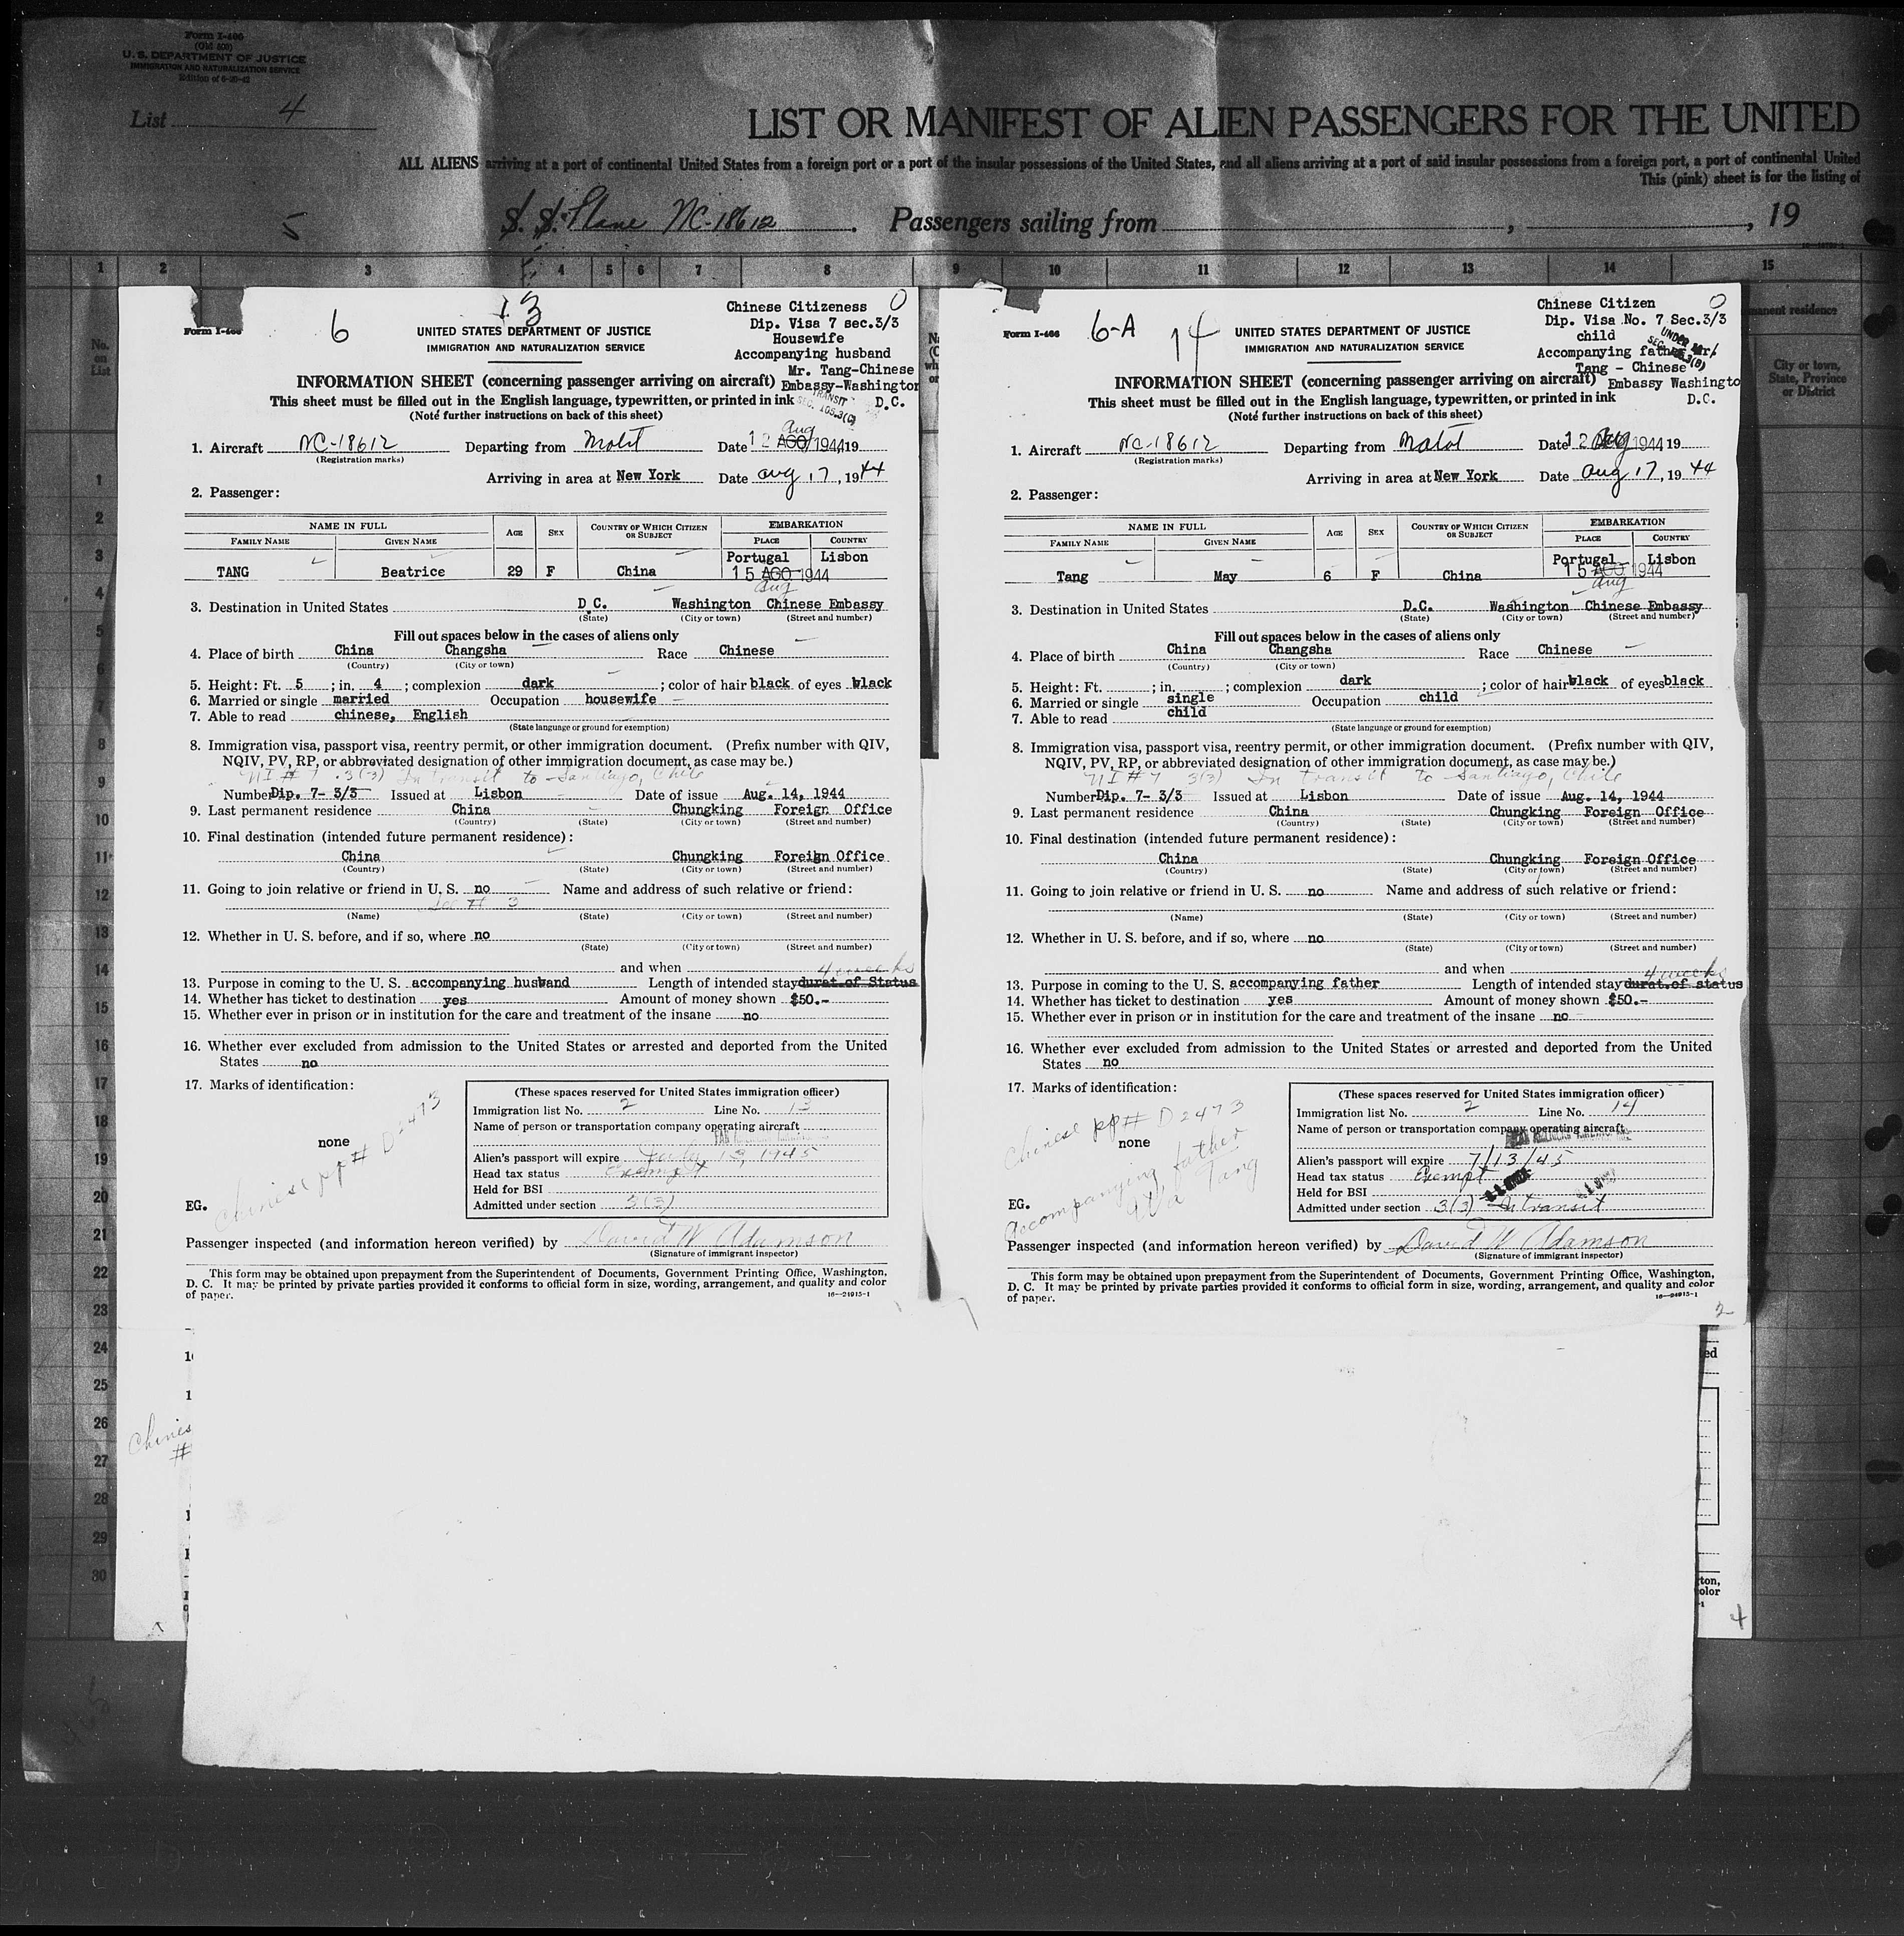 Form I-466
(Old 503)
U. S. DEPARTMENT OF JUSTICE
IMMIGRATION AND NATURALIZATION SERVICE
Edition of 6-20-42
List 4
LIST OR MANIFEST OF ALIEN PASSENGERS FOR THE UNITED
ALL ALIENS arriving at a port of continental United States from a foreign port or a port of the insular possessions of the United States, and all aliens arriving at a port of said insular possessions from a foreign port, a port of continental United
This (pink) sheet is for the listing of
5 S. S. Plane NC-18612. Passengers sailing from , , 19
1 2 3 4 5 6 7 8 9 10 11 12 13 14 15
No. on List
manent residence
City or town, State, Province or District
1
2
3
4
5
6
7
8
9
10
11
12
13
14
15
16
17
18
19
20
21
22
23
24
25
26
27
28
29
30
Form I-466
6
13
0
Chinese Citizeness
Dip. Visa 7 sec.3/3
Housewife
Accompanying husband
Mr. Tang-Chinese
Embassy-Washington
D.C.
TRANSIT
SEC. 105.3(C)
UNITED STATES DEPARTMENT OF JUSTICE
IMMIGRATION AND NATURALIZATION SERVICE
INFORMATION SHEET (concerning passenger arriving on aircraft)
This sheet must be filled out in the English language, typewritten, or printed in ink
(Note further instructions on back of this sheet)
Aug
1. Aircraft NC-18612 Departing from Date 12 AGO 1944 19
(Registration marks)
Arriving in area at New York Date Aug 17, 1944
2. Passenger:
NAME IN FULL AGE SEX COUNTRY OF WHICH CITIZEN OR SUBJECT EMBARKATION
FAMILY NAME GIVEN NAME PLACE COUNTRY
Portugal Lisbon
TANG Beatrice 29 F China 15 AGO 1944
Aug
3. Destination in United States D.C. Washington Chinese Embassy
(State) (City or town) (Street and number)
Fill out spaces below in the cases of aliens only
4. Place of birth China Changsha Race Chinese
(Country) (City or town)
5. Height: Ft. 5; in. 4; complexion dark; color of hair black of eyes black
6. Married or single married Occupation housewife
7. Able to read chinese, English
(State language or ground for exemption)
8. Immigration visa, passport visa, reentry permit, or other immigration document. (Prefix number with QIV,
NQIV, PV, RP, or abbreviated designation of other immigration document, as case may be.)
NI # 7 3(3) In transit to Santiago, Chile
Number Dip. 7- 3/3 Issued at Lisbon Date of issue Aug. 14, 1944
9. Last permanent residence China Chungking Foreign Office
(Country) (State) (City or town) (Street and number)
10. Final destination (intended future permanent residence):
China Chungking Foreign Office
(Country) (State) (City or town) (Street and number)
11. Going to join relative or friend in U. S. no Name and address of such relative or friend:
See # 3
(Name) (State) (City or town) (Street and number)
12. Whether in U. S. before, and if so, where no
(State) (City or town) (Street and number)
and when
4 weeks
13. Purpose in coming to the U. S. accompanying husband Length of intended stay durat.of Status
14. Whether has ticket to destination yes Amount of money shown $50.-
15. Whether ever in prison or in institution for the care and treatment of the insane no
16. Whether ever excluded from admission to the United States or arrested and deported from the United
States no
17. Marks of identification:
none
Chinese pp # D 2473
EG.
(These spaces reserved for United States immigration officer)
Immigration list No. 2 Line No. 13
Name of person or transportation company operating aircraft
PAN AMERICAN AIRWAYS
Alien's passport will expire July 13, 1945
Head tax status Exempt
Held for BSI
Admitted under section 3(3)
Passenger inspected (and information hereon verified) by David W Adamson
(Signature of immigrant inspector)
This form may be obtained upon prepayment from the Superintendent of Documents, Government Printing Office, Washington,
D. C. It may be printed by private parties provided it conforms to official form in size, wording, arrangement, and quality and color
of paper.
16—24915-1
Form I-466
6-A
14
0
Chinese Citizen
Dip. Visa No. 7 Sec.3/3
child
Accompanying father Mr/
Tang - Chinese
Embassy Washingto
D.C.
UNDER
UNITED STATES DEPARTMENT OF JUSTICE
IMMIGRATION AND NATURALIZATION SERVICE
INFORMATION SHEET (concerning passenger arriving on aircraft)
This sheet must be filled out in the English language, typewritten, or printed in ink
(Note further instructions on back of this sheet)
1. Aircraft NC-18612 Departing from Date 12 Aug 1944 19
(Registration marks)
Arriving in area at New York Date Aug 17, 1944
2. Passenger:
NAME IN FULL AGE SEX COUNTRY OF WHICH CITIZEN OR SUBJECT EMBARKATION
FAMILY NAME GIVEN NAME PLACE COUNTRY
Portugal Lisbon
Tang May 6 F China 15 AGO 1944
Aug
3. Destination in United States D.C. Washington Chinese Embassy
(State) (City or town) (Street and number)
Fill out spaces below in the cases of aliens only
4. Place of birth China Changsha Race Chinese
(Country) (City or town)
5. Height: Ft. ; in. ; complexion dark; color of hair black of eyes black
6. Married or single single Occupation child
7. Able to read child
(State language or ground for exemption)
8. Immigration visa, passport visa, reentry permit, or other immigration document. (Prefix number with QIV,
NQIV, PV, RP, or abbreviated designation of other immigration document, as case may be.)
NI # 7 3(3) In transit to Santiago, Chile
Number Dip. 7- 3/3 Issued at Lisbon Date of issue Aug. 14, 1944
9. Last permanent residence China Chungking Foreign Office
(Country) (State) (City or town) (Street and number)
10. Final destination (intended future permanent residence):
China Chungking Foreign Office
(Country) (State) (City or town) (Street and number)
11. Going to join relative or friend in U. S. no Name and address of such relative or friend:
(Name) (State) (City or town) (Street and number)
12. Whether in U. S. before, and if so, where no
(State) (City or town) (Street and number)
and when
4 weeks
13. Purpose in coming to the U. S. accompanying father Length of intended stay durat.of status
14. Whether has ticket to destination yes Amount of money shown $50.-
15. Whether ever in prison or in institution for the care and treatment of the insane no
16. Whether ever excluded from admission to the United States or arrested and deported from the United
States no
17. Marks of identification:
Chinese pp# D2473
none
Accompanying father
Tang
EG.
(These spaces reserved for United States immigration officer)
Immigration list No. 2 Line No. 14
Name of person or transportation company operating aircraft
Alien's passport will expire 7/13/45
Head tax status Exempt
Held for BSI
Admitted under section 3(3) In transit
Passenger inspected (and information hereon verified) by David W Adamson
(Signature of immigrant inspector)
This form may be obtained upon prepayment from the Superintendent of Documents, Government Printing Office, Washington,
D. C. It may be printed by private parties provided it conforms to official form in size, wording, arrangement, and quality and color
of paper.
16—24915-1
2
Chines
#
ed
ton,
olor
4